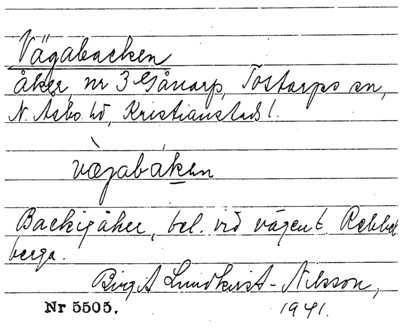 Vägabacken
åker, nr 3 Gånarp, Tostarps sn,
N. Asbo hd, Kristianstads l.
vägabákan
Backig åker, bel. vid vägen t. Rebbel
berga.
Birgit Lundkvist-Nilsson,
Nr 5505. 1941.